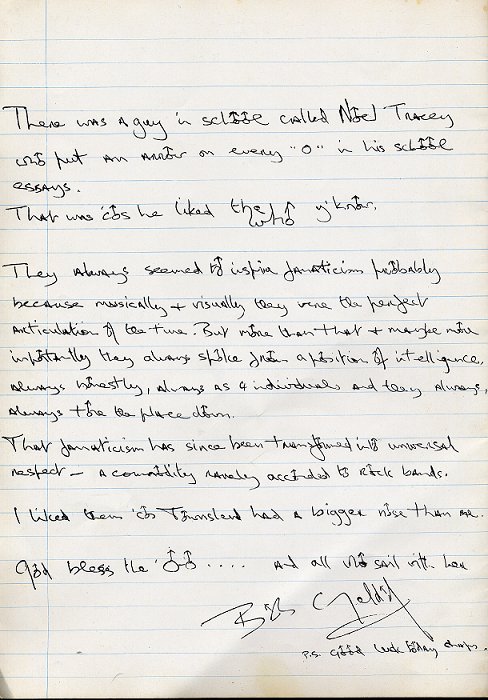 There was a guy in school called Noel Tracey
who put an arrow on every "O" in his school
essays.
That was 'cos he liked the who y'know.
They always seemed to inspire fanaticism probably
because musically + visually they were the perfect
articulation of the time. But more than that + maybe more
importantly they always spoke from a position of intelligence,
always honestly, always as 4 individuals and they always,
always tore the place down.
That fanaticism has since been transformed into universal
respect – a commodity rarely accorded to Rock bands.
I liked them 'cos Townshend had a bigger nose than me.
God bless the 'OO ..... and all who sail with her
Bob Geldof
P.S. Good luck today chaps.